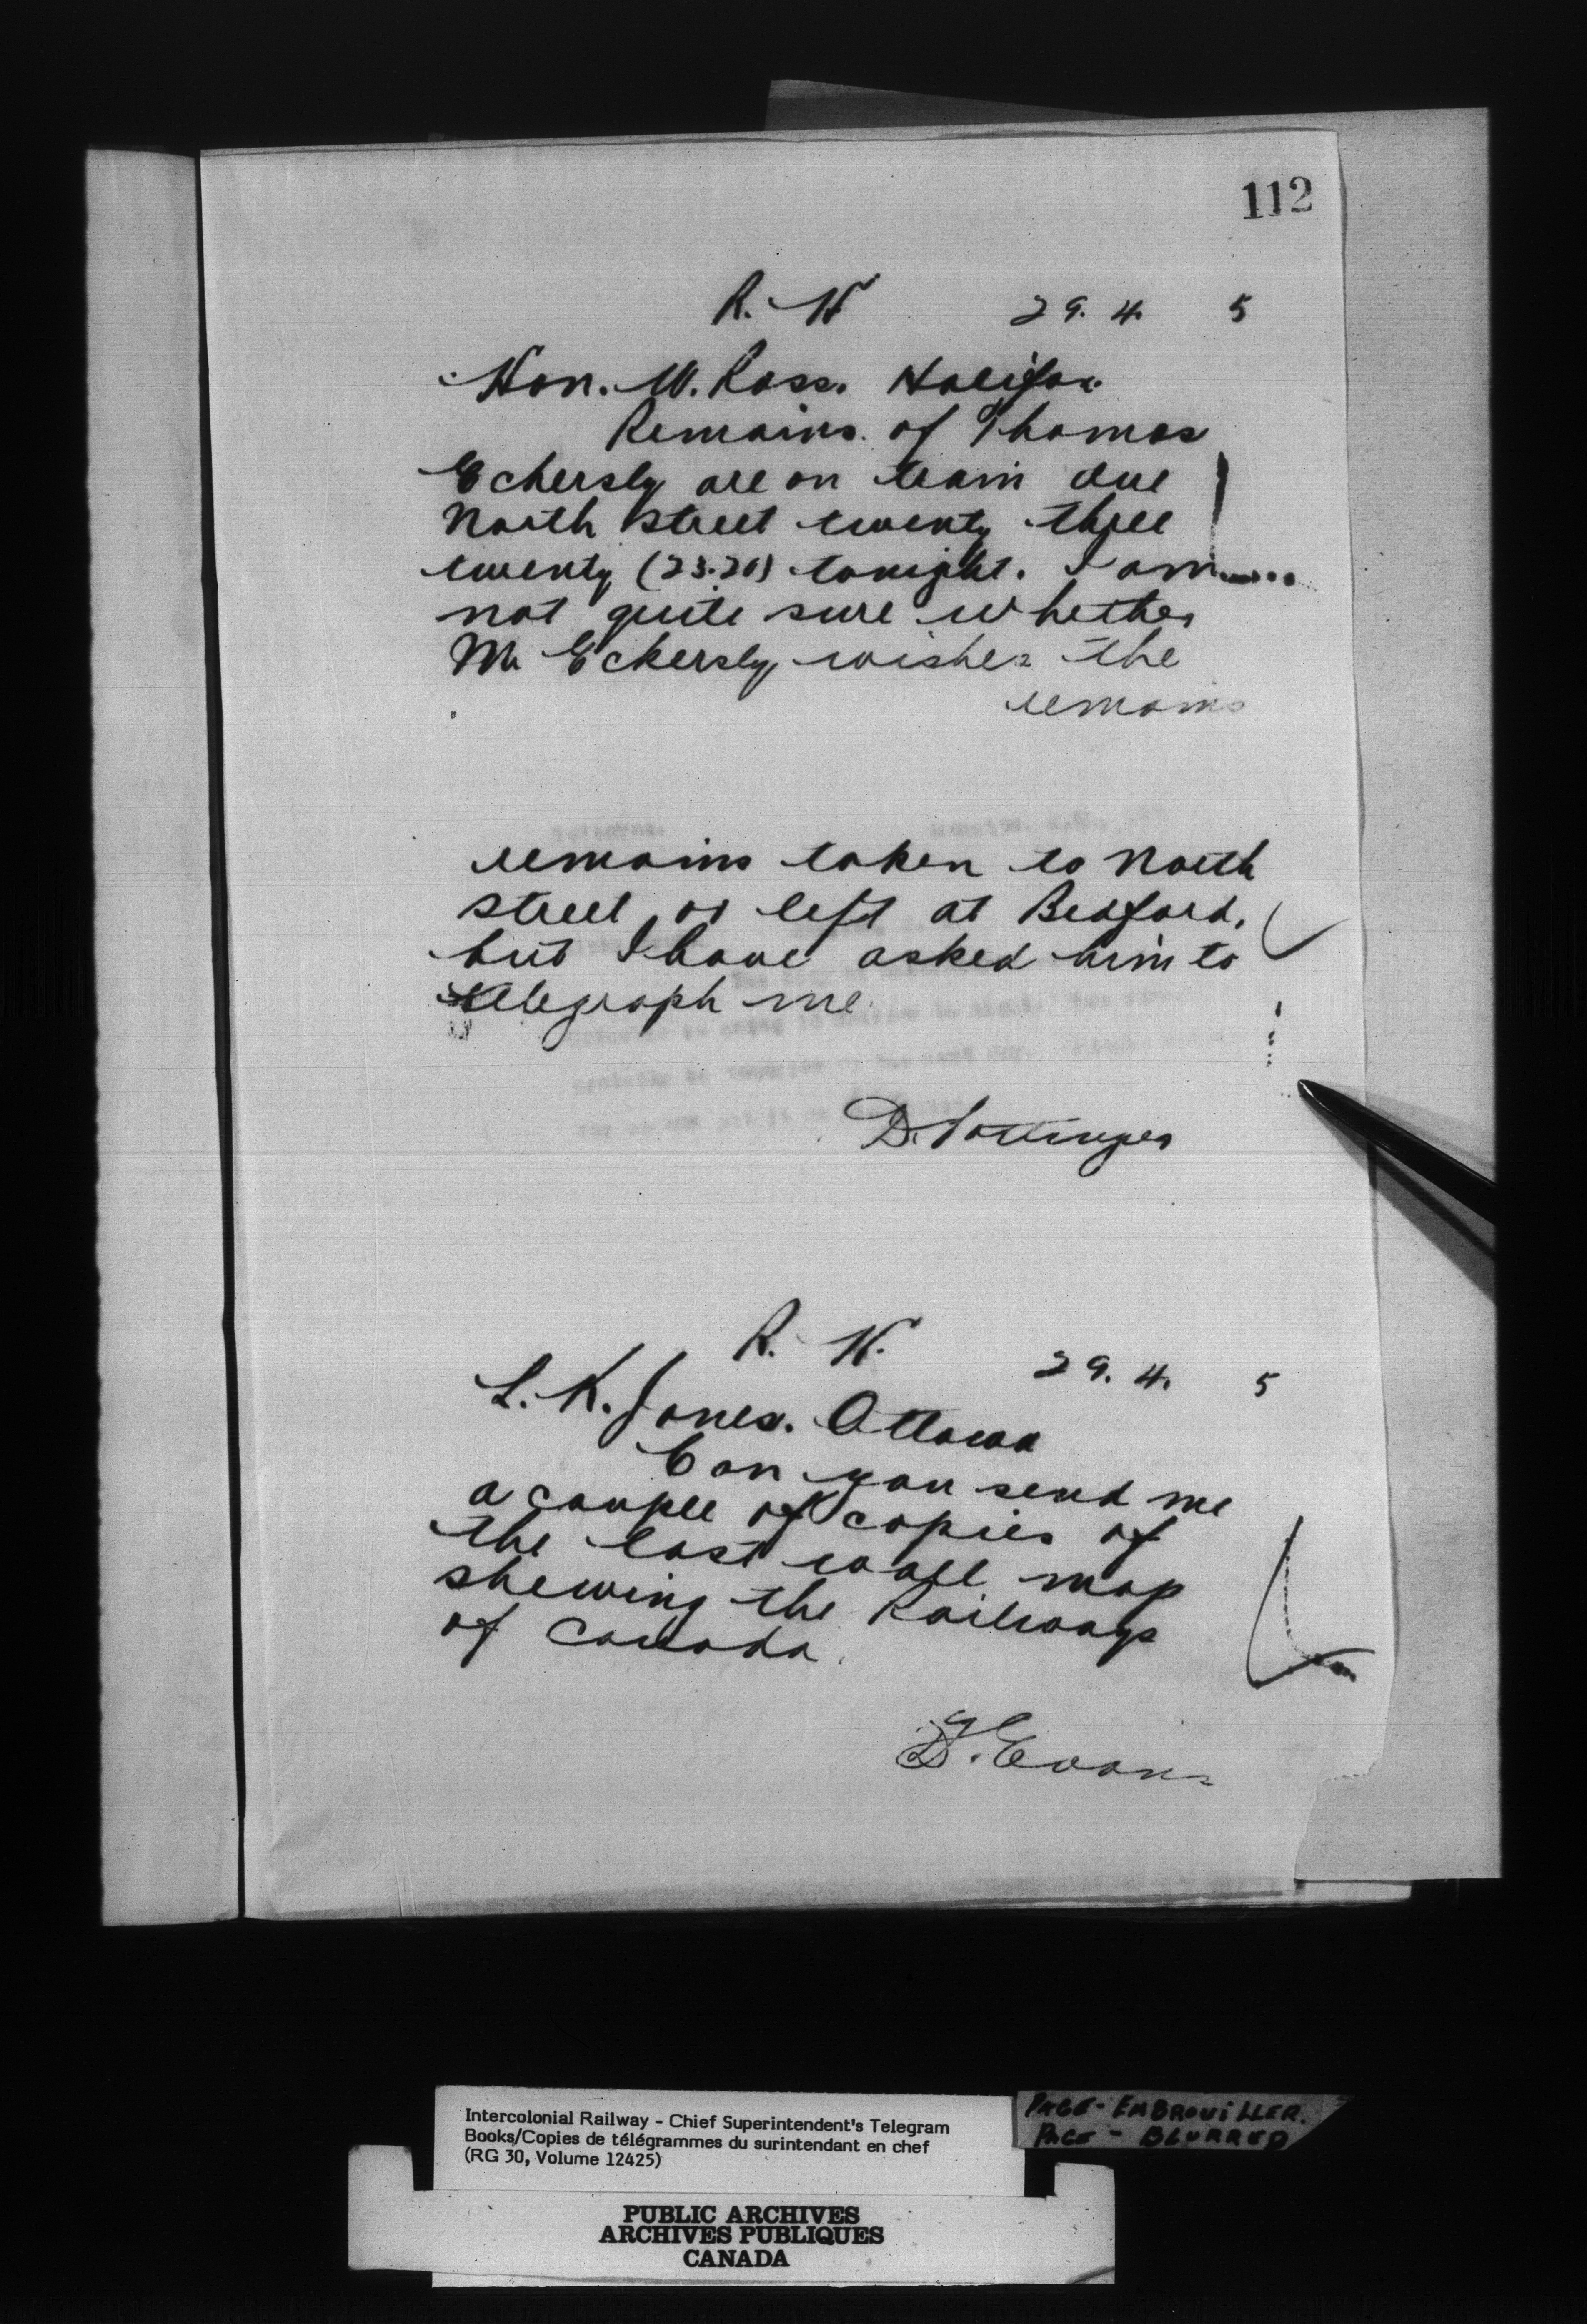 112
R. H 29. 4. 5
Hon. W. Ross. Halifax
Remains of Thomas
Eckersly are on train due
North Street twenty three
twenty (23.20) tonight. I am
not quite sure whether
Mr Eckersly wishes the
remains
remains taken to North
Street or left at Bedford,
but I have asked him to
telegraph me.
D. Pottinger
R. H. 29. 4. 5
L. K. Jones. Ottawa
Can you send me
a couple of copies of
the last wall map
shewing the Railways
of Canada.
Evans
Intercolonial Railway - Chief Superintendent's Telegram
Books/Copies de télégrammes du surintendant en chef
(RG 30, Volume 12425)
PAGE - EMBROUILLER.
PAGE - BLURRED
PUBLIC ARCHIVES
ARCHIVES PUBLIQUES
CANADA